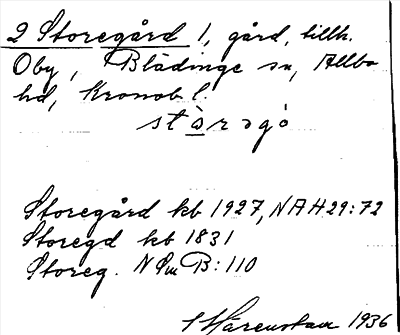 2 Storegård 1, gård, tillh.
Oby, Blädinge sn, Allbo
hd, Kronob. l.
Storegård kb 1927, NAH 29:72
Storegd kb 1831
Storeg. NSm B:110
1936